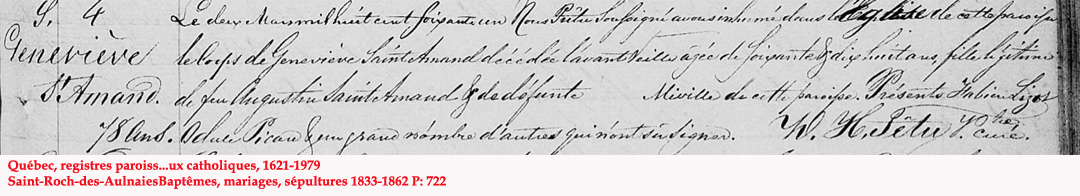 S. 4
Geneviève
St Amand.
78 ans.
Le deux Mars mil huit cent soixante un Nous Prêtre Soussigné avons inhumé dans l'Eglise de cette paroisse
le corps de Geneviève Saint Amand décédée l'avant Veille agée de soixante & dix huit ans, fille légitime
de feu Augustin Saint Amand & de défunte Miville de cette paroisse. Présents Fabien Lizot
Picard & un grand nombre d'autres qui n'ont su signer. H. Têtu Ptre
Curé.
Québec, registres paroiss...ux catholiques, 1621-1979
Saint-Roch-des-AulnaiesBaptêmes, mariages, sépultures 1833-1862 P: 722